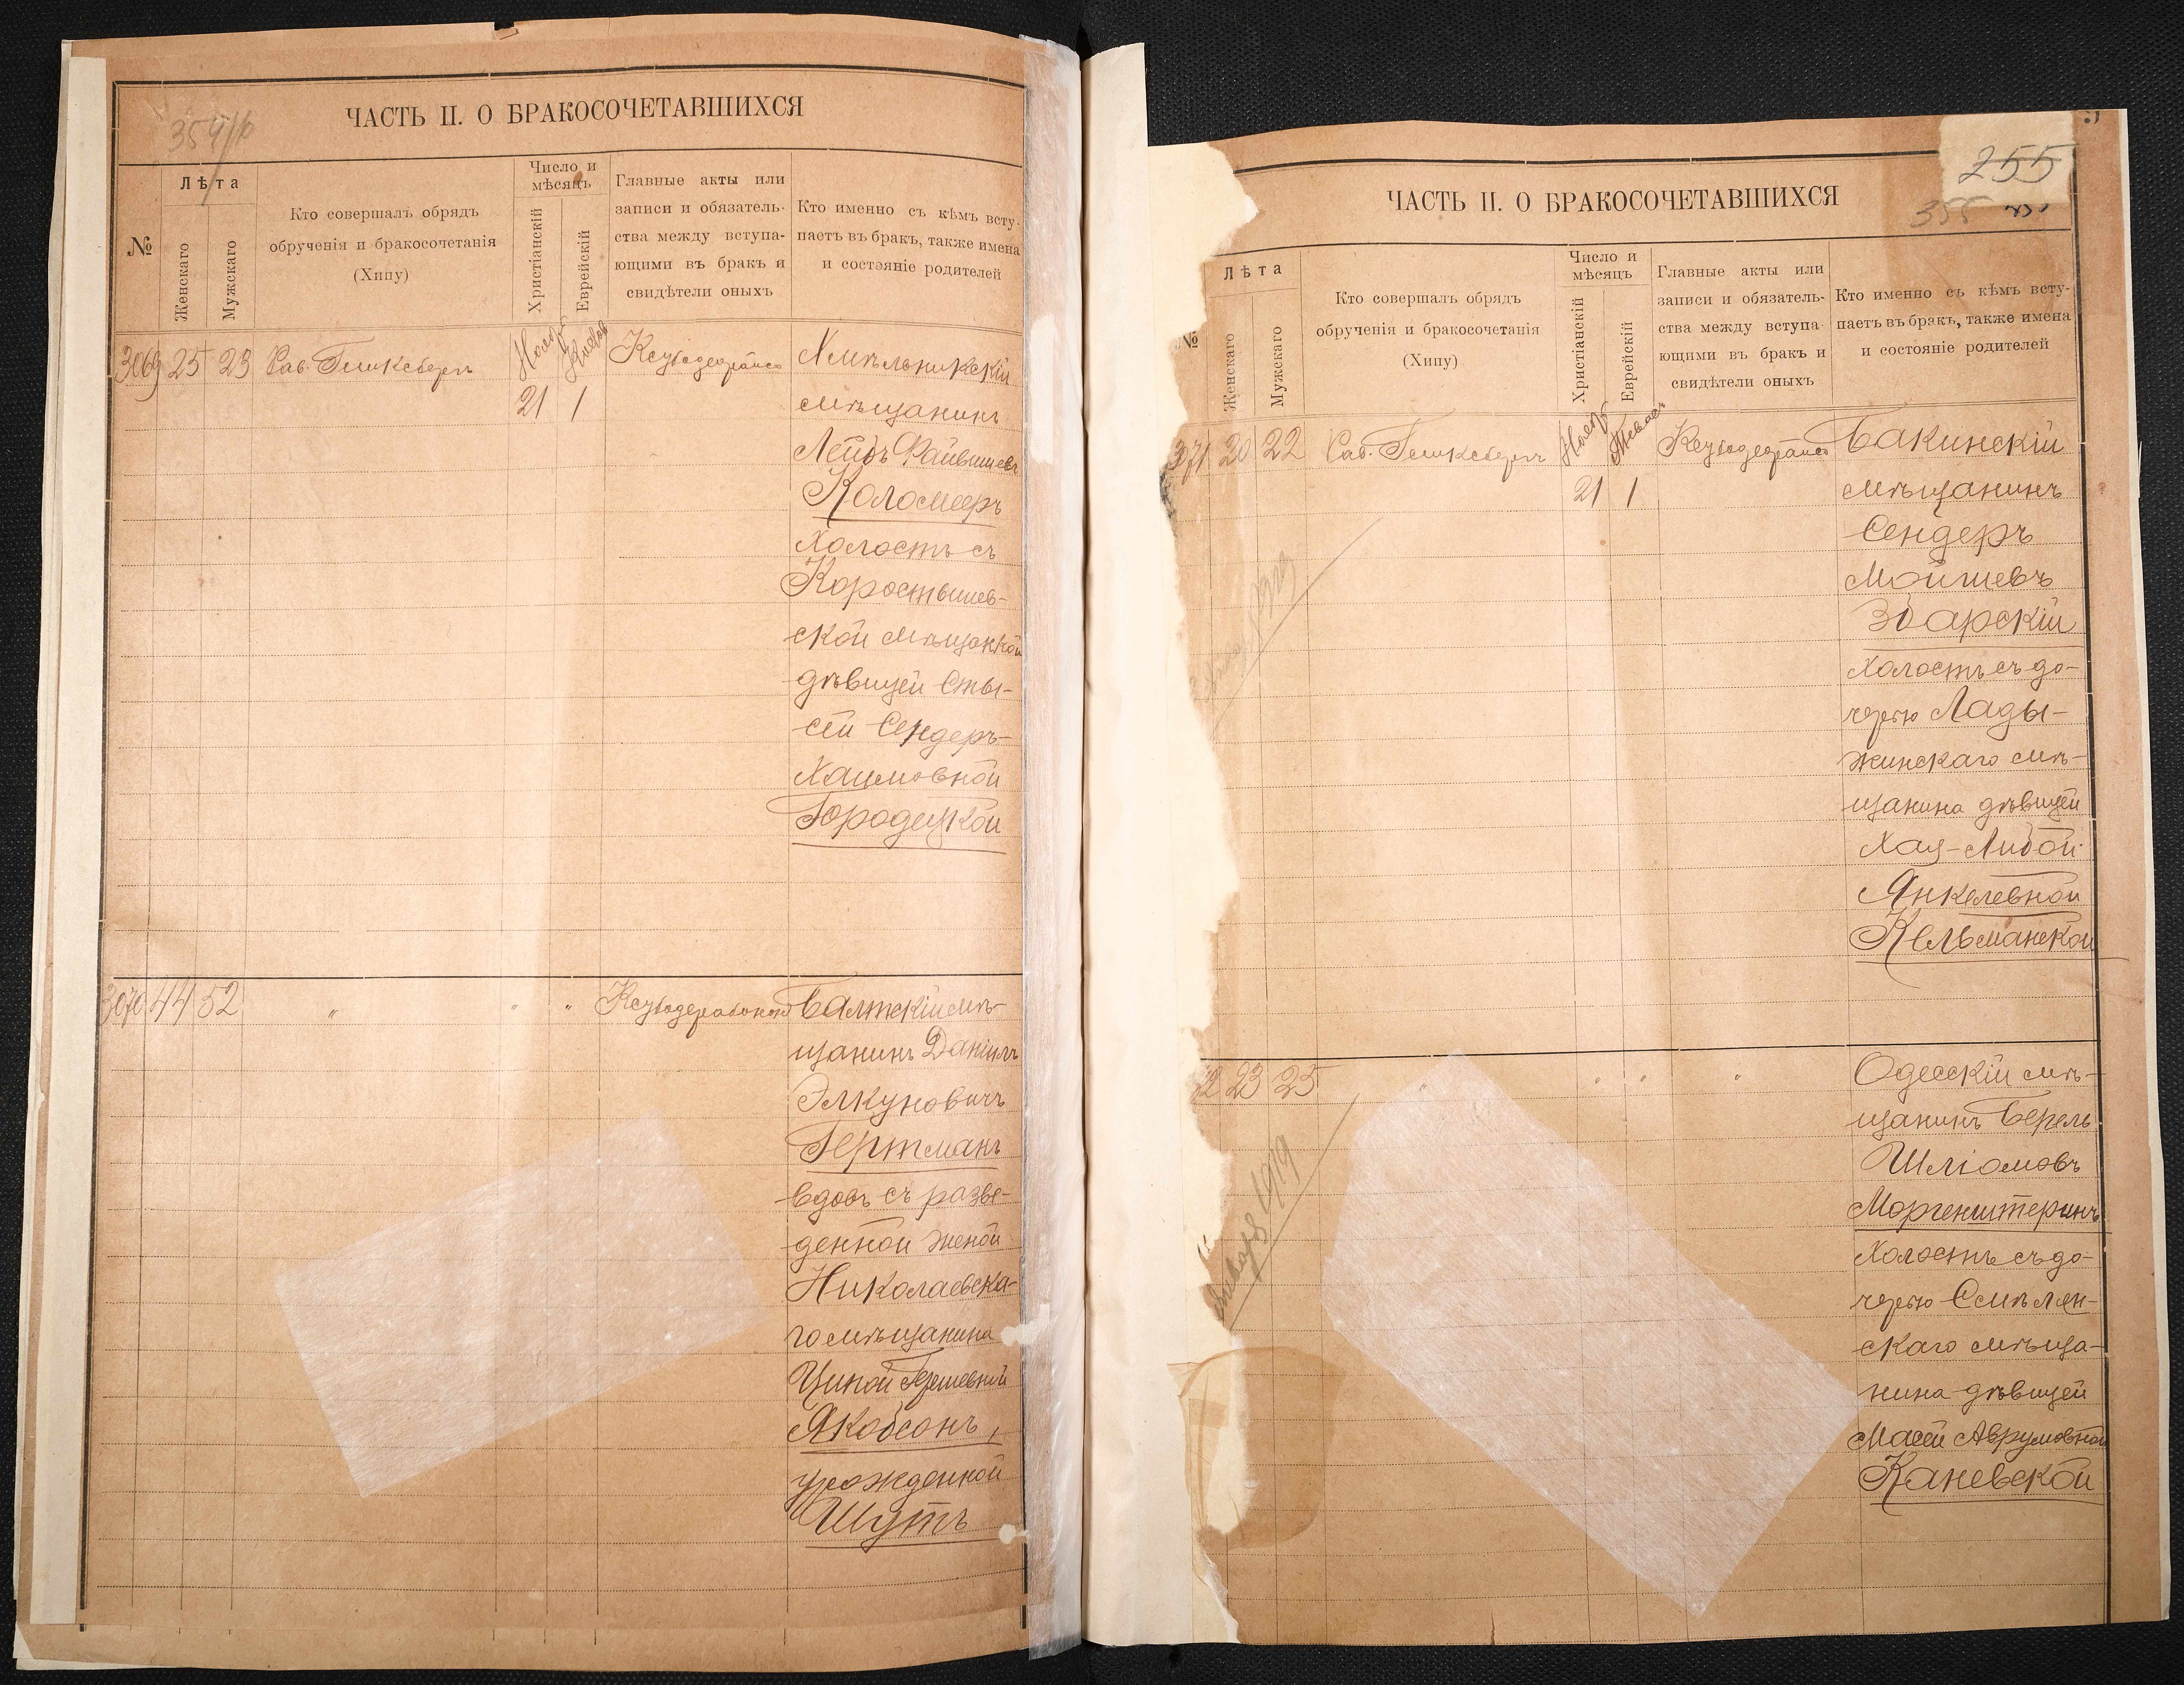 354/б
ЧАСТЬ II. О БРАКОСОЧЕТАВШИХСЯ
№
Лѣта
Женскаго
Мужскаго
Кто совершалъ обрядъ
обрученія и бракосочетанія
(Хипу)
Число и
мѣсяцъ
Христіанскій
Еврейскій
Главные акты или
записи и обязатель-
ства между вступа-
ющими въ бракъ и
свидѣтели оныхъ
Кто именно съ кѣмъ всту-
паетъ въ бракъ, также имена
и состояніе родителей
3069 25 23 Рав. Гликсбергъ
Нояб
21 1
Хмѣльникскій
мѣщанинъ
Лейбъ Файвишевъ
Коломееръ
холостъ съ
Коростышев-
ской мѣщанкой
дѣвицей Сты-
сей Сендеръ-
Хаимовной
Городецкой
3070 44 52 " " "
Балтскій мѣ-
щанинъ Даніилъ
Элкуновичъ
Гертманъ
вдовъ съ разве-
денной женой
Николаевска-
го мѣщанина
Ципой Гершевной
Якобсонъ,
урожденной
Шутъ
255
355
ЧАСТЬ II. О БРАКОСОЧЕТАВШИХСЯ
№
Лѣта
Женскаго
Мужскаго
Кто совершалъ обрядъ
обрученія и бракосочетанія
(Хипу)
Число и
мѣсяцъ
Христіанскій
Еврейскій
Главные акты или
записи и обязатель-
ства между вступа-
ющими въ бракъ и
свидѣтели оныхъ
Кто именно съ кѣмъ всту-
паетъ въ бракъ, также имена
и состояніе родителей
371 20 22 Рав. Гликсбергъ
Нояб
21 1
Бакинскій
мѣщанинъ
Сендеръ
Мойшевъ
Збарскій
холостъ съ до-
черью Лады-
жинскаго мѣ-
щанина дѣвицей
Хая-Либой
Янкелевной
Кельманской
72 23 25 " " " "
Одесскій мѣ-
щанинъ Берель
Шліомовъ
Моргенштернъ
холостъ съ до-
черью Смѣлян-
скаго мѣща-
нина дѣвицей
Масей Аврумовной
Каневской